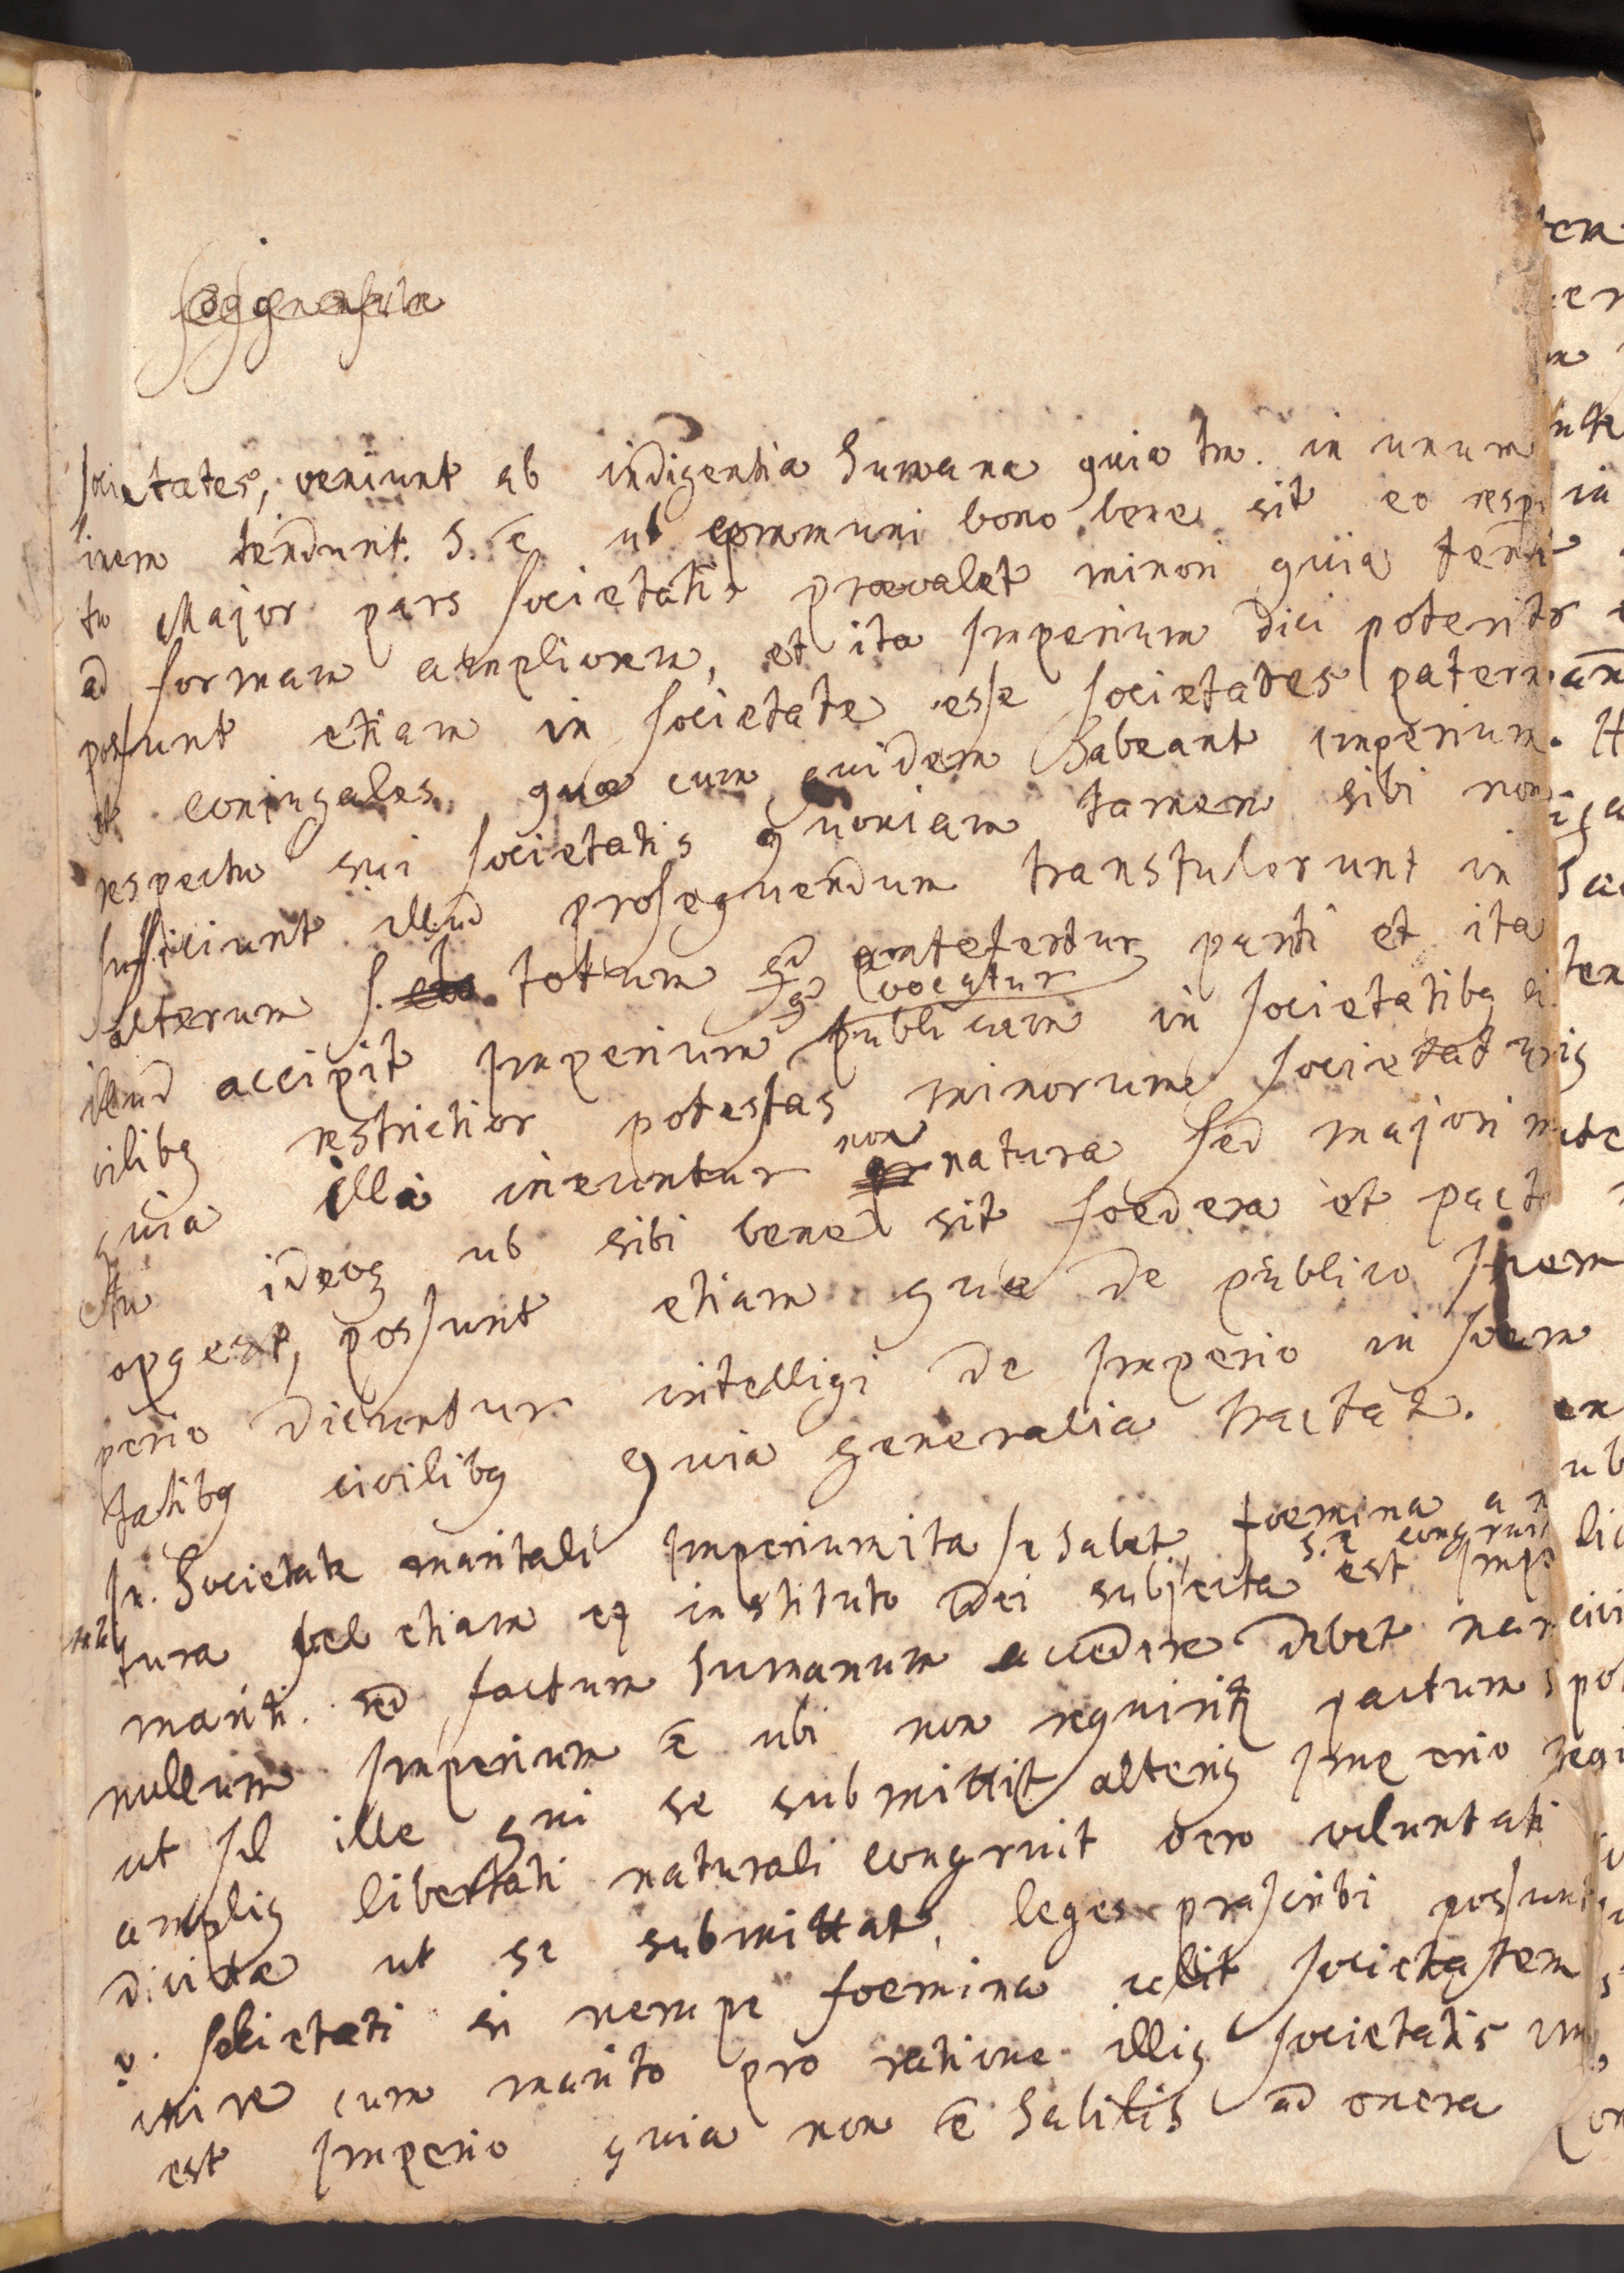 societates, veniunt ab indigentia humana quia tm. in unum
inem tendunt. h. ē ut communi bono bene sit eo resp
tu Major pars societatis praevalet minori quia tent
ad formam ampliorem, et ita Imperium dici poterit
possunt etiam in societate esse societates patern
et conjugales quae cum quidem habeant imperium
respectu sui societatis quoniam tamen sibi non
sufficiunt illud prosequendum transtulerunt in
alterum s. totum qd antefertur parti et ita
qd vocatur
illud accipit Imperium publicum in societatibq ci
vilibq restrictior potestas minorum societat
quia illa ineuntur non natura sed majori m
ctu ideoq ut sibi bene sit foedera et pact
opq est, possunt etiam quae de publico Im
perio dicuntur intelligi de Imperio in
tatibq civilibq quia generalia tractat.
In Societate maritali Imperium ita se habet foemina a n
s. ē congruit
tura vel etiam ex instituto Dei subjecta est Imp
mariti. sed factum humanum accedere debet nam
nullum Imperium ē ubi non requirit pactum
ut sd ille qui se submittit alteriq Imperio
ampliq libertati naturali congruit vero voluntati
divinae ut se submittat, leges praescribi possunt
societati si nempe foemina velit societatem
inire cum marito pro ratione illiq societatis
est Imperio quia non ē habilis ad onera